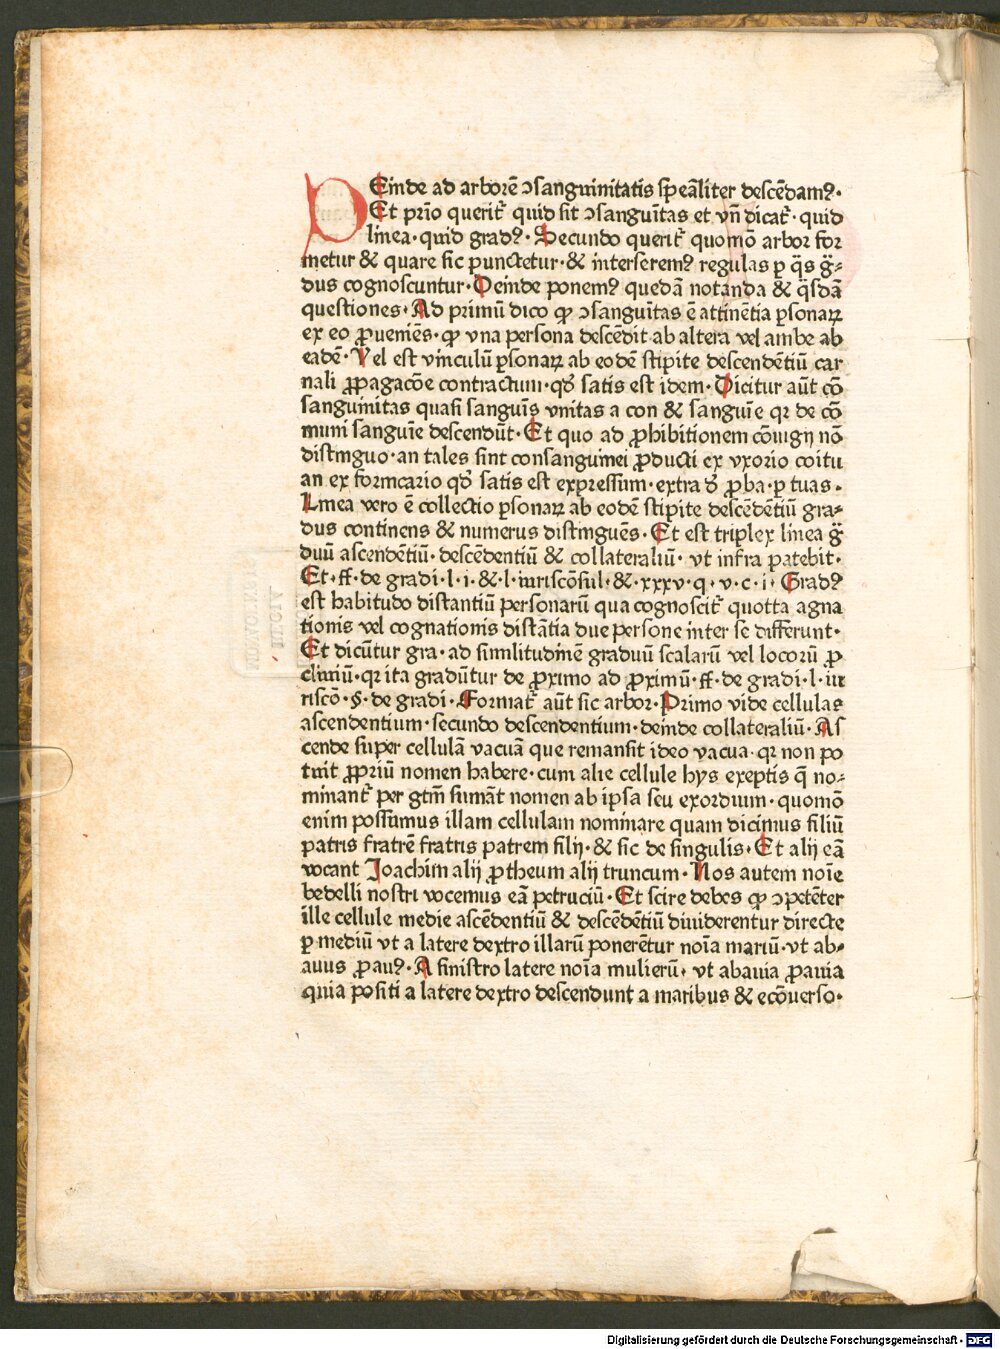 DEinde ad arborē ↄsanguinitatis sp̄eāliter descēdamꝰ·
Et prīo querit᷑ quid sit ↄsanguītas et vn̄ dicat᷑· quid
linea· quid gradꝰ· Secundo querit᷑ quomō arbor for
metur & quare sic punctetur· & interseremꝰ regulas ꝑ q̄s g̈⸗
dus cognoscuntur· Deinde ponemꝰ quedā notanda & q̄sdā
questiones· Ad primū dico ꝙ ↄsanguītas ē attinētia ꝑsonaꝝ
ex eo ꝓueniēs· ꝙ vna persona descēdit ab altera vel ambe ab
eadē· Vel est vinculū ꝑsonaꝝ ab eodē stipite descendētiū car
nali ꝓpagacōe contractum· qđ satis est idem· Dicitur aūt cō
sanguinitas quasi sanguīs vnitas a con & sanguīe qr de cō
muni sanguīe descendūt· Et quo ad ꝓhibitionem cōiugij nō
distinguo· an tales sint consanguinei ꝓducti ex vxorio coitu
an ex fornicario qđ satis est expressum· extra đ ꝓba· ꝑ tuas·
Linea vero ē collectio ꝑsonaꝝ ab eodē stipite descēdētiū gra⸗
dus continens & numerus distinguēs· Et est triplex linea g̈
duū ascendētiū· descēdentiū & collateraliū· vt infra patebit·
Et· ff· de gradi· l· i· & l· iuriscōsul· &· xxxv· q· v· c· i· Gradꝰ
est habitudo distantiū personarū qua cognoscit᷑ quotta agna
tionis vel cognationis distātia due persone inter se differunt·
Et dicūtur gra· ad similitudinē graduū scalarū vel locorū ꝓ
cliuiū· qr ita gradūtur de ꝓximo ad ꝓximū· ff· de gradi· l· iu
riscō· §· de gradi· Format᷑ aūt sic arbor· Primo vide cellulas
ascendentium· secundo descendentium· deinde collateraliū· As
cende super cellulā vacuā que remansit ideo vacua· qr non po
tuit ꝓpriū nomen habere· cum alie cellule hys exeptis q̄ no⸗
minant᷑ per gtm̄ sumāt nomen ab ipsa seu exordium· quomō
enim possumus illam cellulam nominare quam dicimus filiū
patris fratrē fratris patrem filij· & sic de singulis· Et alij eā
vocant Joachim alij ꝓtheum alij truncum· Nos autem noīe
bedelli nostri vocemus eā petruciū· Et scire debes ꝙ ↄpetēter
ille cellule medie ascēdentiū & descēdētiū diuiderentur directe
ꝑ mediū vt a latere dextro illarū ponerētur noīa mariū· vt ab⸗
auus ꝓauꝰ· A sinistro latere noīa mulierū· vt abauia ꝓauia
quia positi a latere dextro descendunt a maribus & ecōuerso·
Digitalisierung gefördert durch die Deutsche Forschungsgemeinschaft - DFG